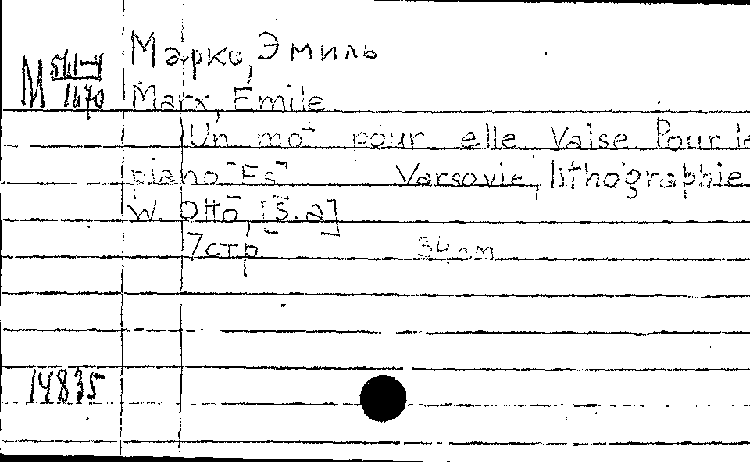 Маркс, Эмиль
М
1670
Marx, Emile
Un mot pour elle Valse Pour le
piano [Es] Varsovie, lithographie
W. Otto, [S.a]
7 стр 34 см
14835